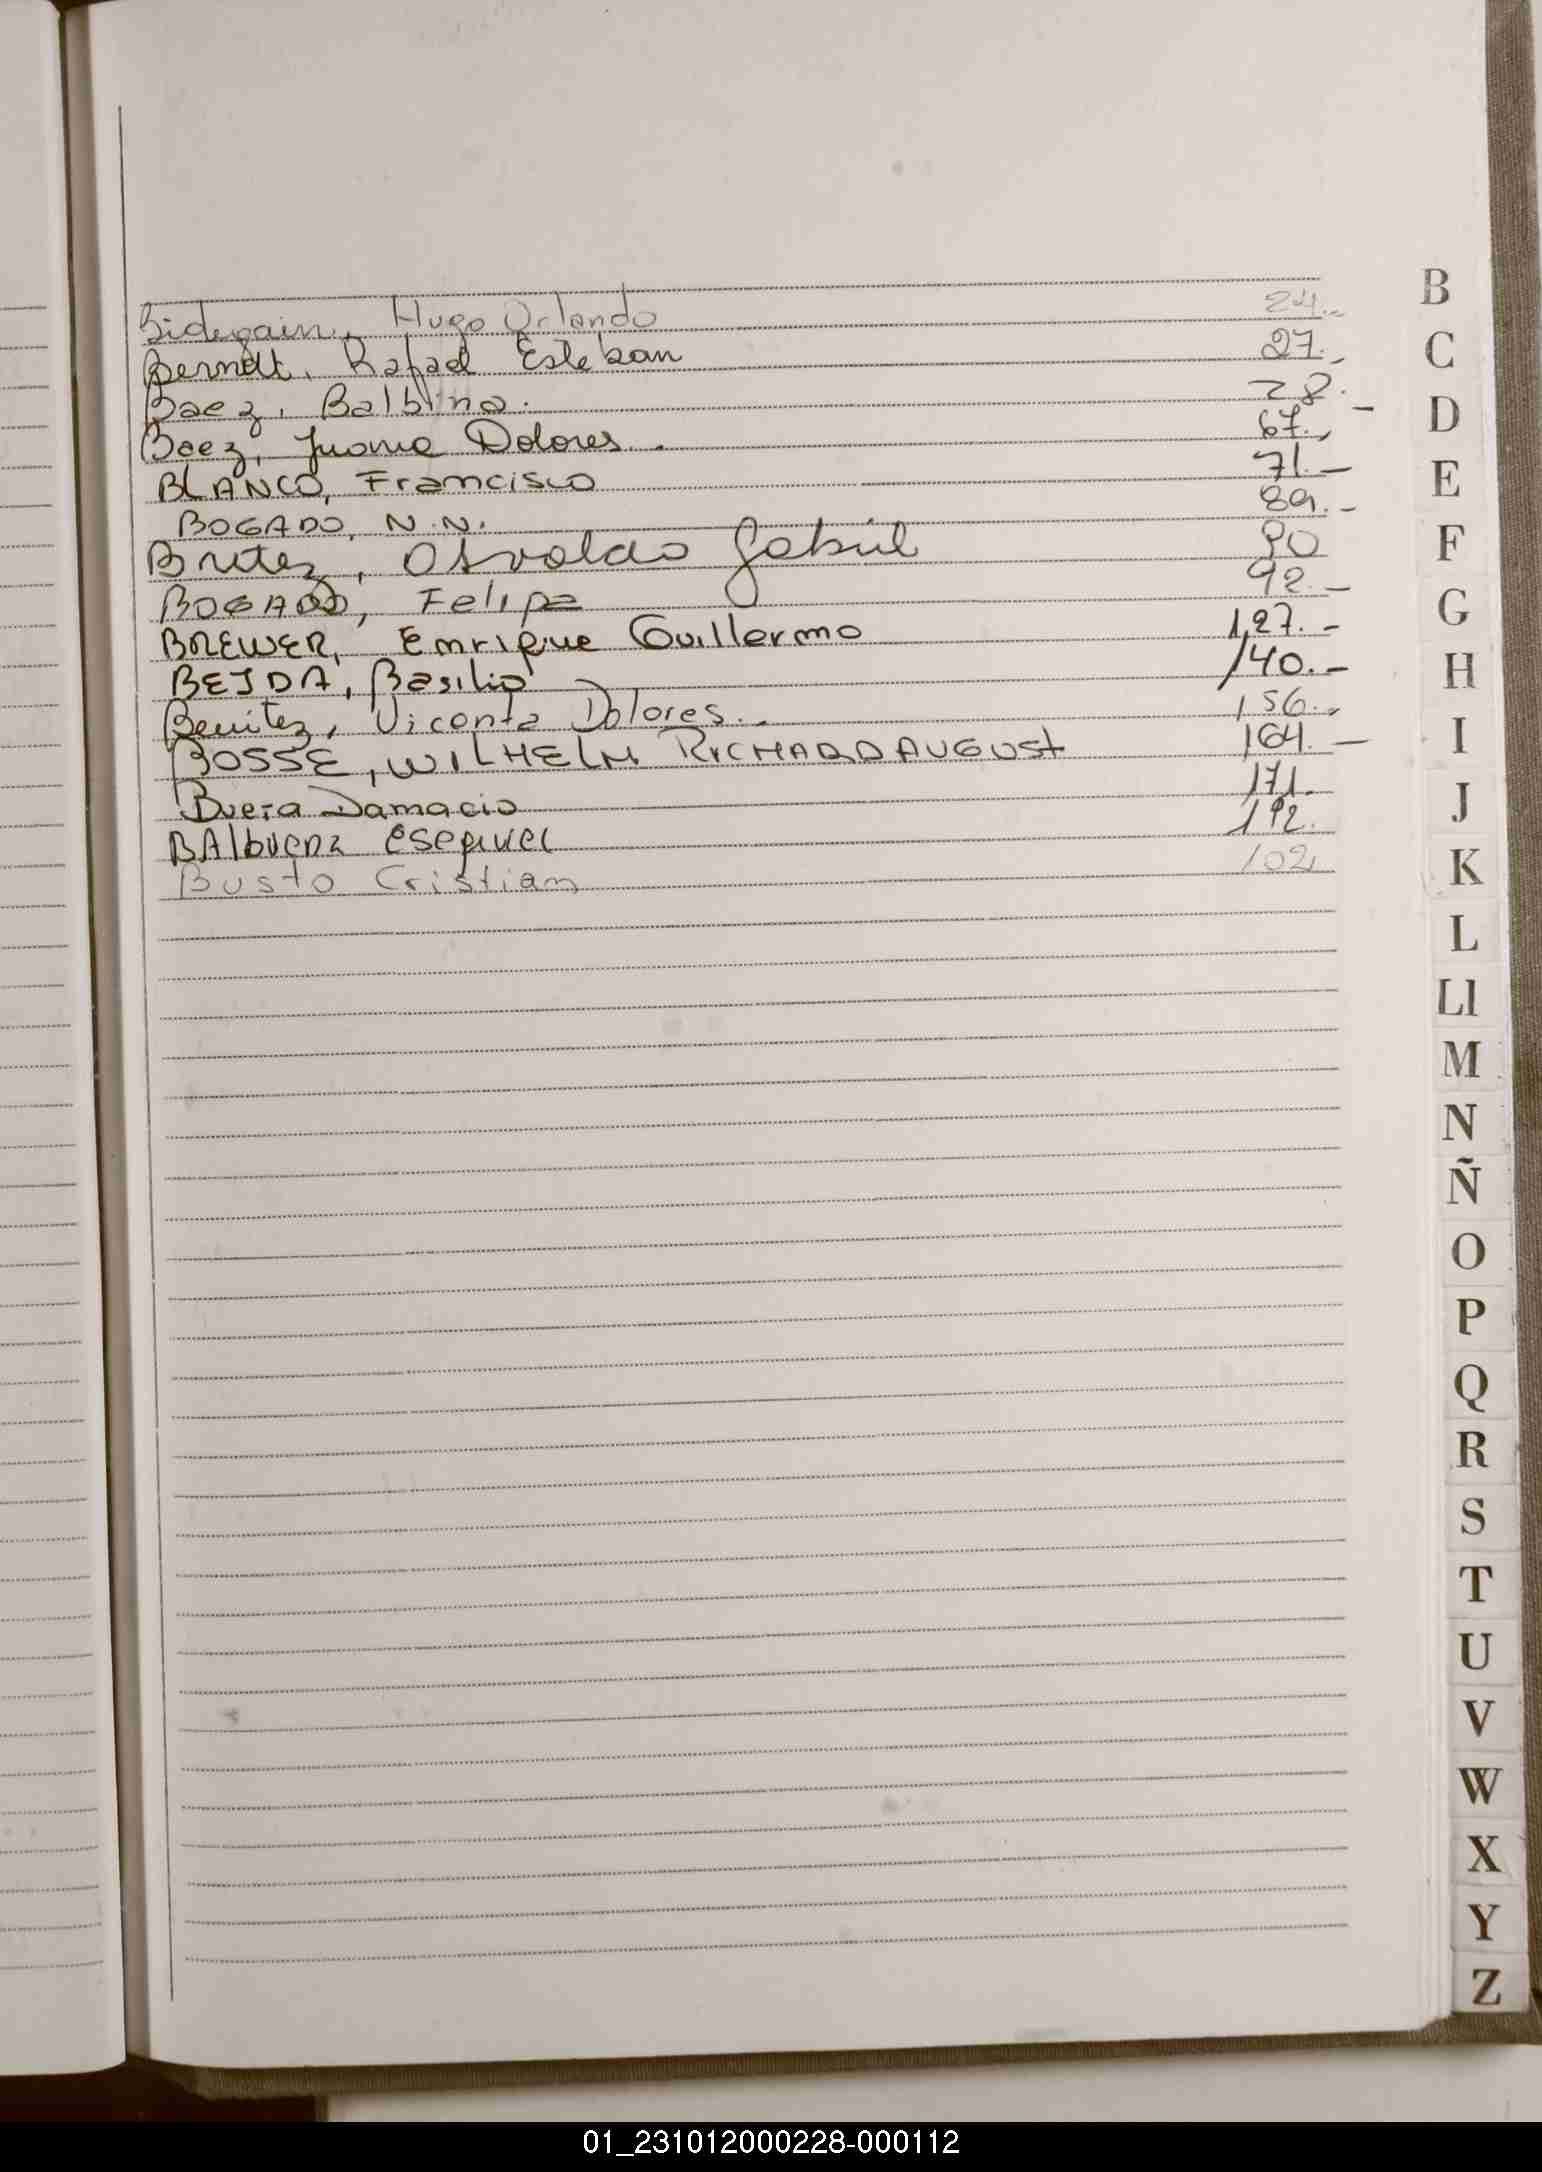 Bidegain, Hugo Orlando 24.-
Berndt, Rafael Esteban 27.-
Baez, Balbina. 28.-
Baez, Juana Dolores.. 67.-
BLANCO, Francisco 71.-
BOGADO, N.N. 89.-
Britez, Osvaldo Gabriel 90
BOGADO, Felipa 92.-
BREWER, Enrique Guillermo 127.-
BEJDA, Basilio 140.-
Benitez, Vicenta Dolores.. 156.-
BOSSE, WILHELM RICHARD AUGUST 164.-
Buera Damacio 171.
BAlbuena Esequiel 192.
Busto Cristian 102
B
C
D
E
F
G
H
I
J
K
L
Ll
M
N
Ñ
O
P
Q
R
S
T
U
V
W
X
Y
Z
01_231012000228-000112